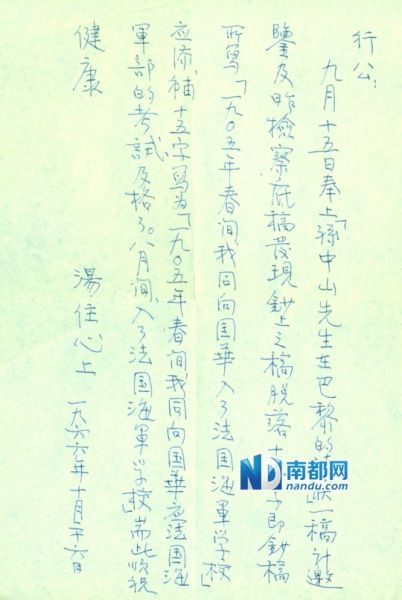 行公:
九月十五日奉上「孫中山先生在巴黎的狀」一稿計邀
鑒及昨檢察底稿發現鈔上之稿脫落十字即鈔稿
所寫「一九〇五年春间我同向国華入了法国海軍学校」
應添補十五字寫为「一九〇五年春间我同向国華應法国海
軍部的考試及格了。八月间入了法国海軍学校」耑此順祝
健康
湯住心上 一九六六年十月廿六日
南都网
nandu.com